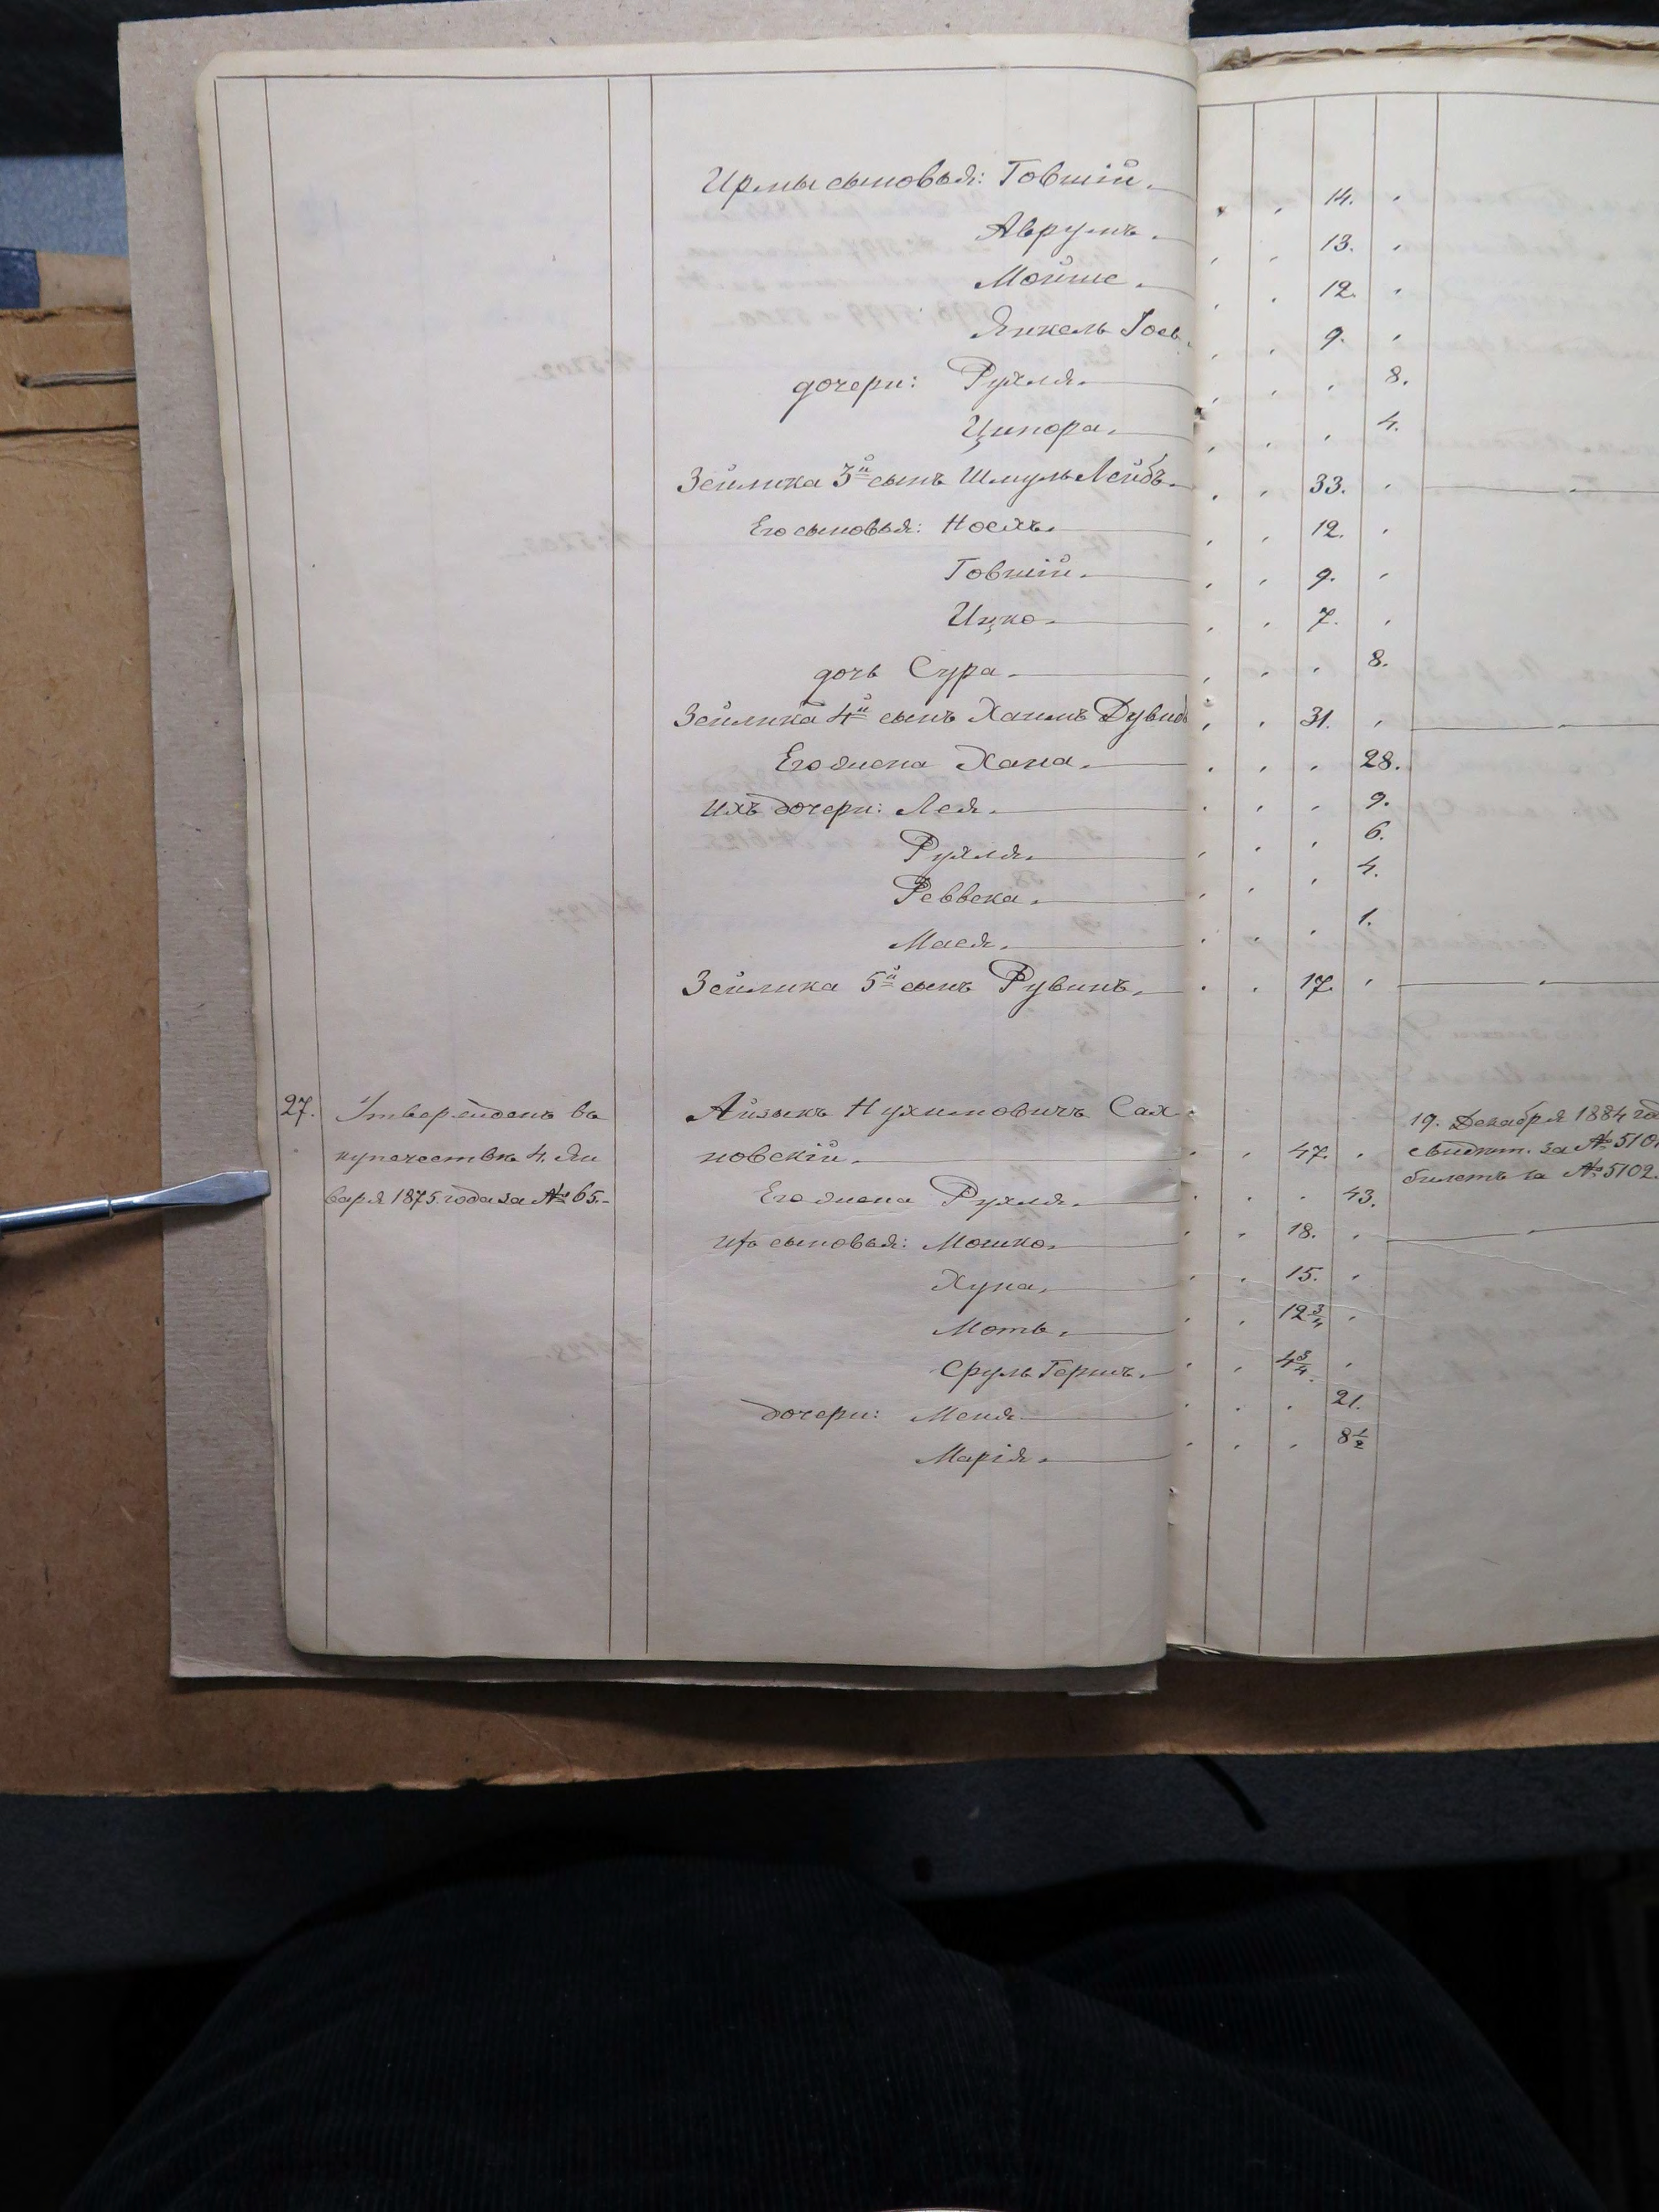 Ирмы сыновья: Говшій. 14.
Аврумъ. 13.
Мойше. 12.
Янкель Іось. 9.
дочери: Рухля. 8.
Ципора. 4.
Зейлика 3й сынъ Шмуль Лейбъ. 33.
Его сыновья: Носяхъ. 12.
Говшій. 9.
Ицко. 7.
дочь Сура. 8.
Зейлика 4й сынъ Хаимъ Дувидъ 31.
Его жена Хана. 28.
Ихъ дочери: Лея. 9.
Рухля. 6.
Реввека. 4.
Мася. 1.
Зейлика 5й сынъ Рувинъ. 17.
27. Утвержденъ въ Айзыкъ Нухимовичъ Сах 19. Декабря 1884 го
купечествѣ 4. Ян новскій. 47. свидѣт. за № 510
варя 1875 года за № 65. Его жена Рухля. 43. билетъ за № 5102.
Ихъ сыновья: Мошко. 18.
Хуна. 15.
Моть. 12 3/4
Сруль Гершъ. 4 3/4.
дочери: Меня 21.
Марія. 8 1/2